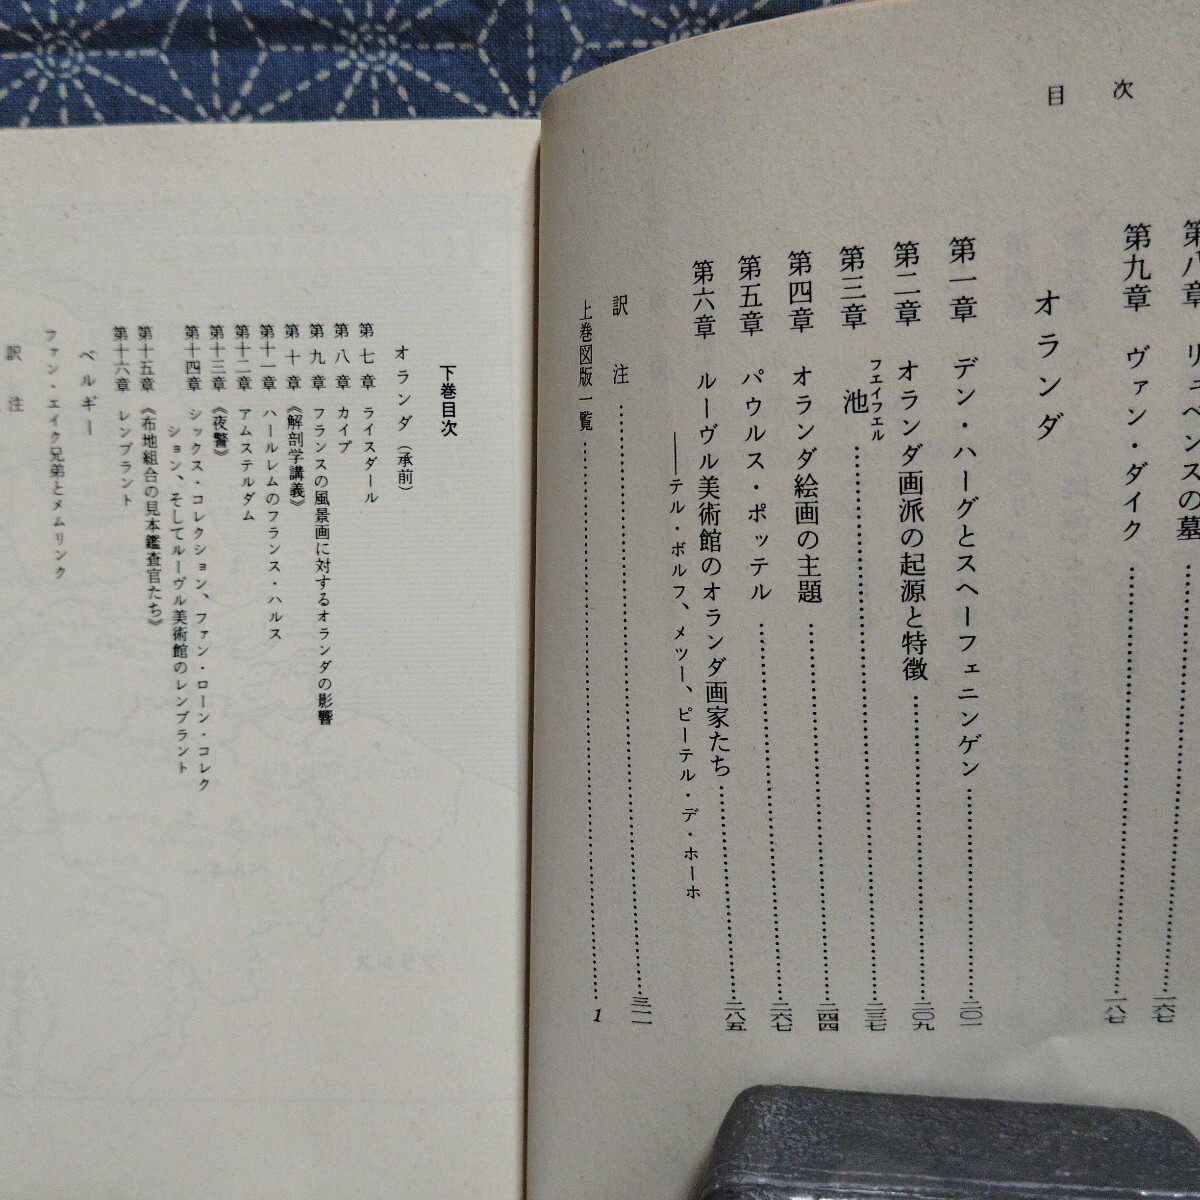 目次
第八章 リュベンスの墓……一六七
第九章 ヴァン・ダイク……一八七
オランダ
第一章 デン・ハーグとスヘーフェニンゲン……二〇一
第二章 オランダ画派の起源と特徴……二〇九
第三章 池フェイフェル……二三七
第四章 オランダ絵画の主題……二四四
第五章 パウルス・ポッテル……二六七
第六章 ルーヴル美術館のオランダ画家たち……二八五
――テル・ボルフ、メツー、ピーテル・デ・ホーホ
訳注……三一一
上巻図版一覧……1
下巻目次
オランダ(承前)
第七章 ライスダール
第八章 カイプ
第九章 フランスの風景画に対するオランダの影響
第十章 《解剖学講義》
第十一章 ハールレムのフランス・ハルス
第十二章 アムステルダム
第十三章 《夜警》
第十四章 シックス・コレクション、ファン・ローン・コレク
ション、そしてルーヴル美術館のレンブラント
第十五章 《布地組合の見本鑑査官たち》
第十六章 レンブラント
ベルギー
ファン・エイク兄弟とメムリンク
訳注